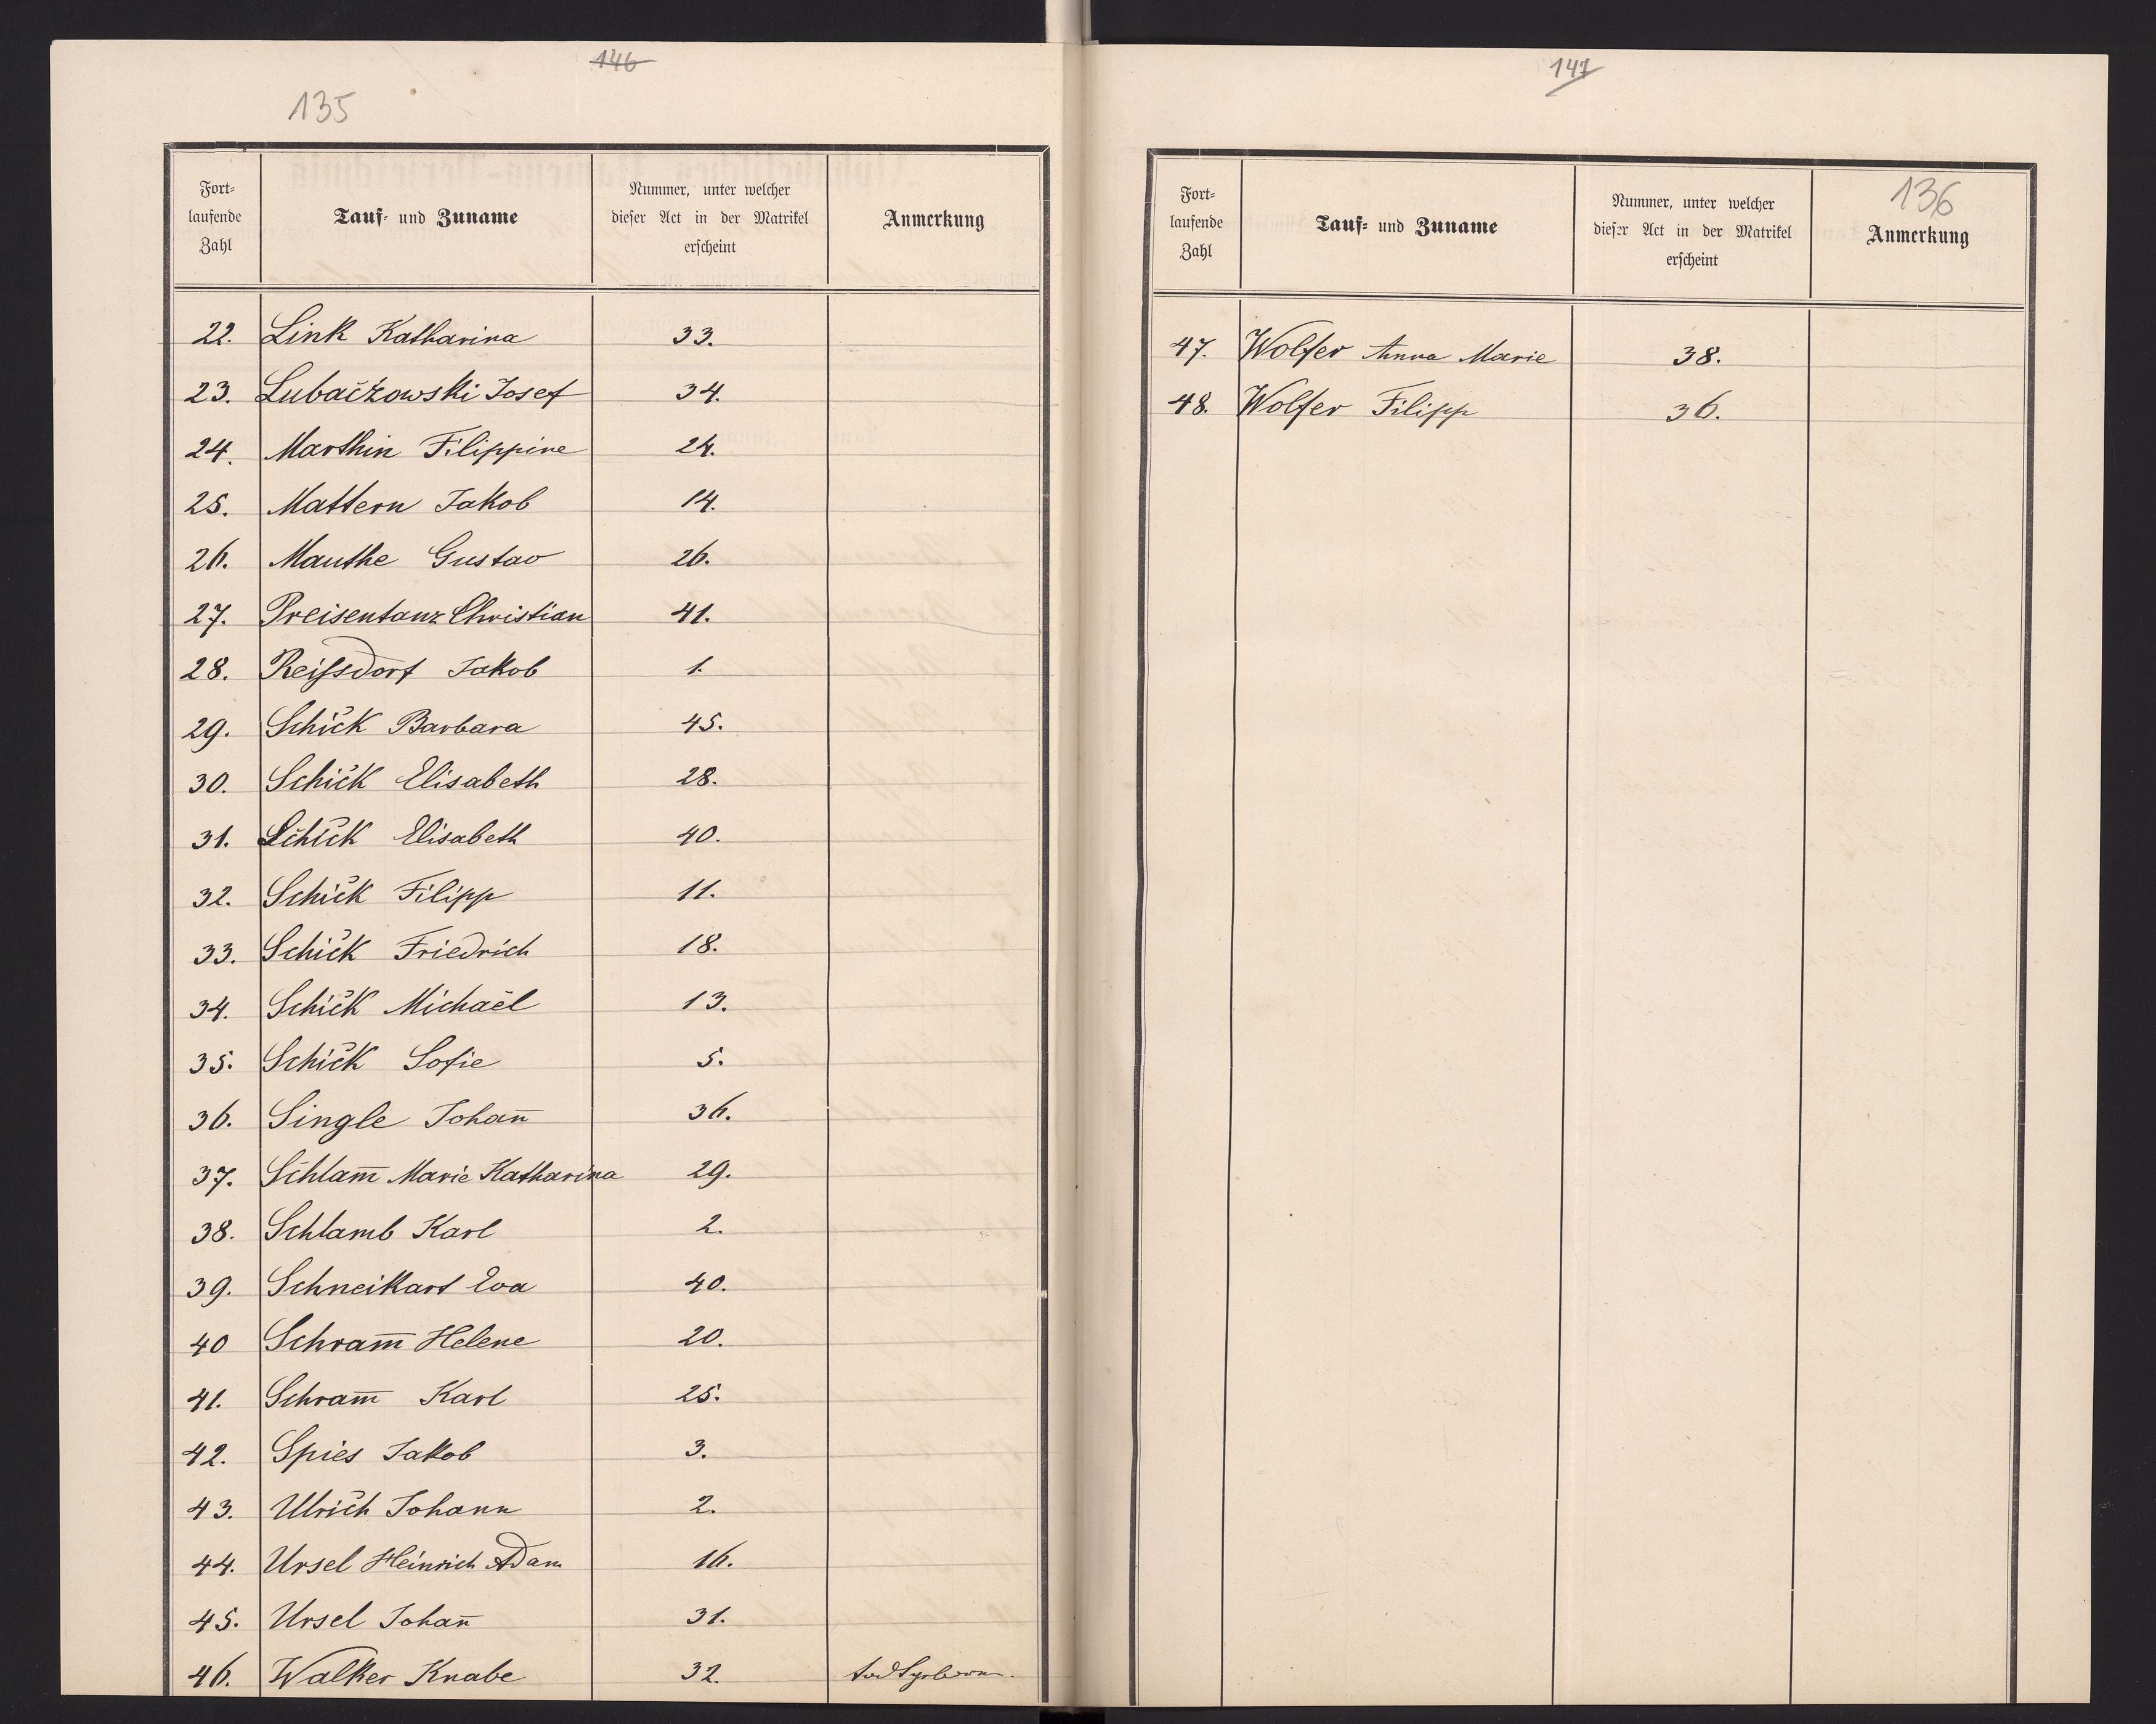 146
135
Fort-
laufende
Zahl
Tauf- und Zuname
Nummer, unter welcher
dieser Act in der Matrikel
erscheint
Anmerkung
22. Link Katharina 33.
23. Lubačzowski Josef 34.
24. Marthin Filippine 24.
25. Mattern Jakob 14.
26. Mauthe Gustav 26.
27. Preisentanz Christian 41.
28. Reifsdorf Jakob 1.
29. Schick Barbara 45.
30. Schick Elisabeth 28.
31. Schick Elisabeth 40.
32. Schick Filipp 11.
33. Schick Friedrich 18.
34. Schick Michaël 13.
35. Schick Sofie 5.
36. Single Johan̄ 36.
37. Schlam̄ Marie Katharina 29.
38. Schlamb Karl 2.
39. Schneikart Eva 40.
40 Schram̄ Helene 20.
41. Schram̄ Karl 25.
42. Spies Jakob 3.
43. Ulrich Johann 2.
44. Ursel Heinrich Adam 16.
45. Ursel Johan̄ 31.
46. Walker Knabe 32. todtgeboren.
147
136
Fort-
laufende
Zahl
Tauf- und Zuname
Nummer, unter welcher
dieser Act in der Matrikel
erscheint
Anmerkung
47. Wolfer Anna Marie 38.
48. Wolfer Filipp 36.